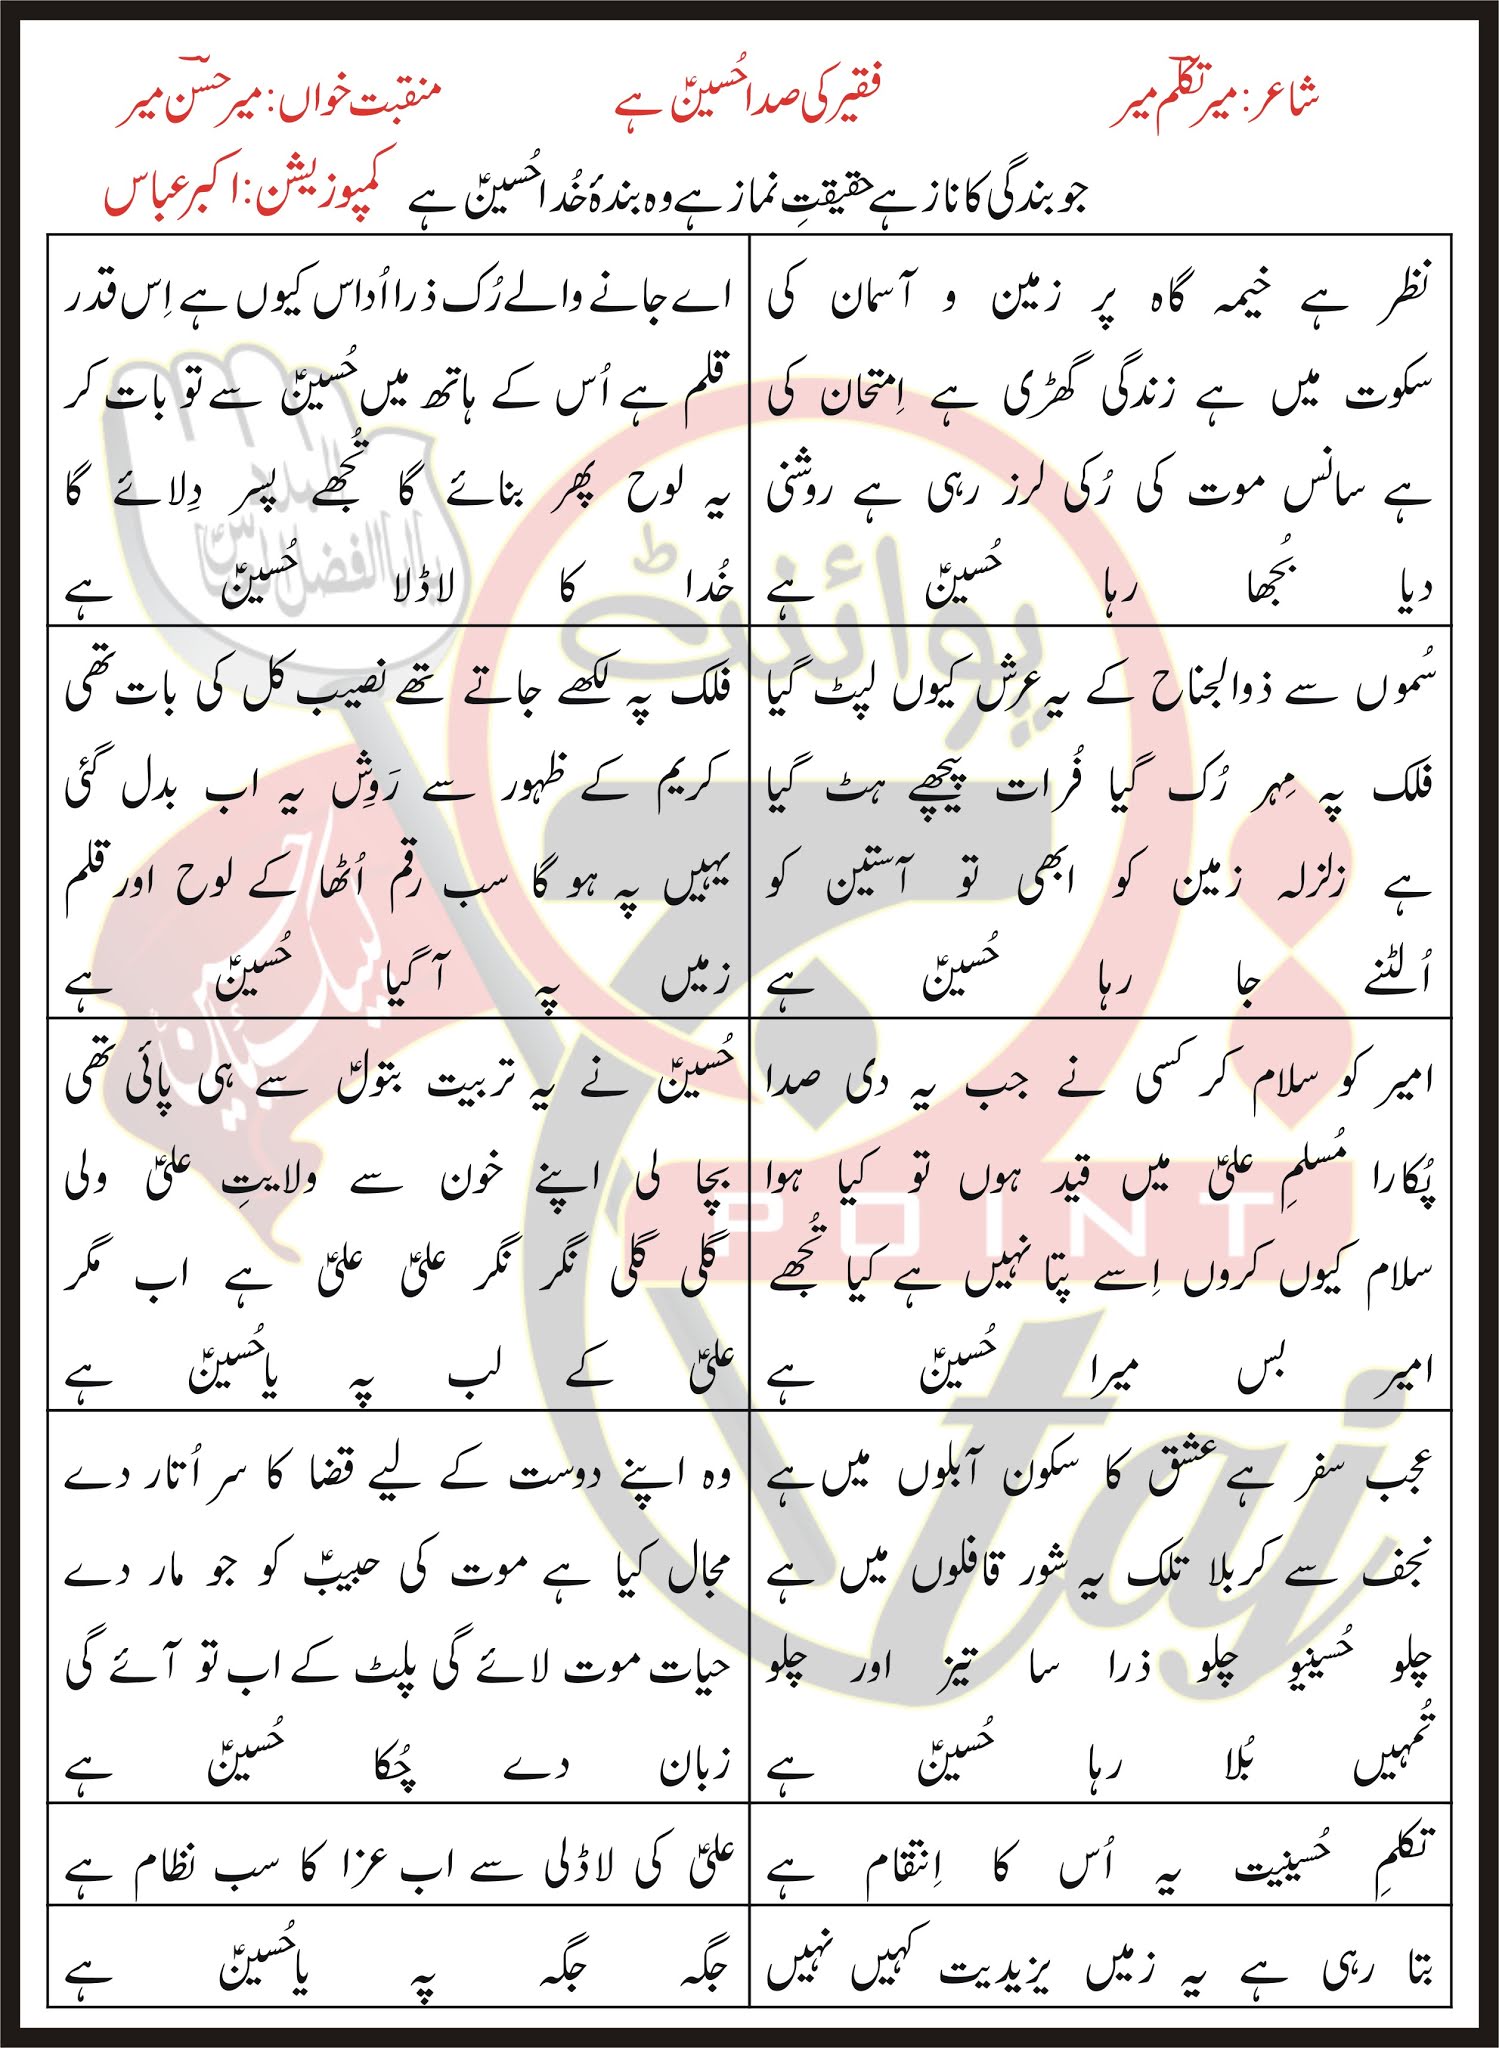 شاعر: میر تکلّم میر
فقیر کی صدا حُسینؑ ہے
منقبت خواں: میر حسن میر
جو بندگی کا ناز ہے حقیقتِ نماز ہے وہ بندۂ خُدا حُسینؑ ہے
کمپوزیشن: اکبر عباس
نظر ہے خیمہ گاہ پر زمین و آسمان کی
سکوت میں ہے زندگی گھڑی ہے اِمتحان کی
ہے سانس موت کی رُکی لرز رہی ہے روشنی
دیا بُجھا رہا حُسینؑ ہے
اے جانے والے رُک ذرا اُداس کیوں ہے اِس قدر
قلم ہے اُس کے ہاتھ میں حُسینؑ سے تو بات کر
یہ لوح پھر بنائے گا تُجھے پسر دِلائے گا
خُدا کا لاڈلا حُسینؑ ہے
سُموں سے ذوالجناح کے یہ عرش کیوں لپٹ گیا
فلک پہ مِہر رُک گیا فُرات پیچھے ہٹ گیا
ہے زلزلہ زمین کو ابھی تو آستین کو
اُلٹنے جا رہا حُسینؑ ہے
فلک پہ لکھے جاتے تھے نصیب کل کی بات تھی
کریم کے ظہور سے رَوِش یہ اب بدل گئی
یہیں پہ ہو گا سب رقم اُٹھا کے لوح اور قلم
زمیں پہ آ گیا حُسینؑ ہے
امیر کو سلام کر کسی نے جب یہ دی صدا
پُکارا مُسلمِ علیؑ میں قید ہوں تو کیا ہوا
سلام کیوں کروں اِسے پتا نہیں ہے کیا تُجھے
امیر بس میرا حُسینؑ ہے
حُسینؑ نے یہ تربیت بتولؑ سے ہی پائی تھی
بچا لی اپنے خون سے ولایتِ علیؑ ولی
گلی گلی نگر نگر علیؑ علیؑ ہے اب مگر
علیؑ کے لب پہ یاحُسینؑ ہے
عجب سفر ہے عشق کا سکون آبلوں میں ہے
نجف سے کربلا تلک یہ شور قافلوں میں ہے
چلو حُسینیو چلو ذرا سا تیز اور چلو
تُمہیں بُلا رہا حُسینؑ ہے
وہ اپنے دوست کے لیے قضا کا سر اُتار دے
مجال کیا ہے موت کی حبیبؑ کو جو مار دے
حیات موت لائے گی پلٹ کے اب تو آئے گی
زبان دے چُکا حُسینؑ ہے
تکلمِ حُسینیت یہ اُس کا اِنتقام ہے
علیؑ کی لاڈلی سے اب عزا کا سب نظام ہے
بتا رہی ہے یہ زمیں یزیدیت کہیں نہیں
جگہ جگہ پہ یاحُسینؑ ہے
پوائنٹ
POINT
taj